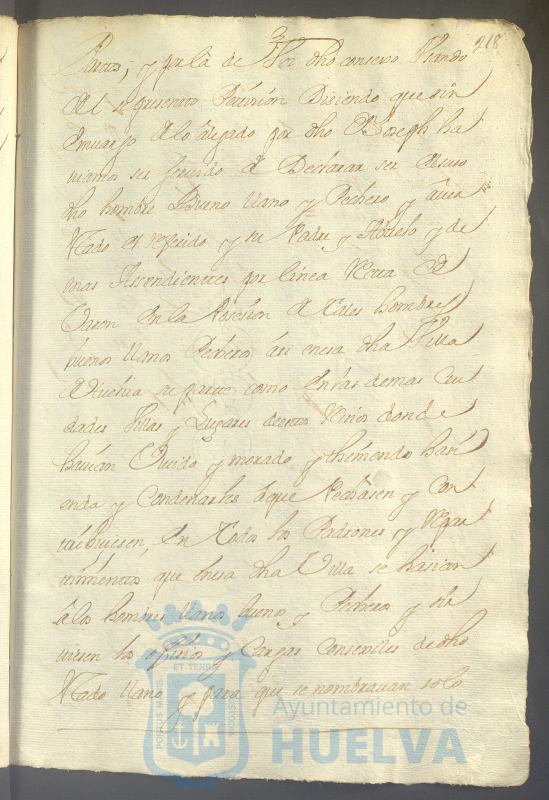 218
Partes; y por la de Vos dho consexo Usando
del presento Petizion Diziendo que sin
Embargo de lo alegado por dho Joseph ha
viamos ser servido de Declarar ser el suso
dho hombre Bueno llano y Pechero y aver
estado el referido y su Padre y Abuelo y de
mas Ascendientes por linea Recta de
Varon En la Posesion de tales hombres
buenos llanos Pecheros asi en esa dha Villa
de Huelva su parte como En las demas Ciu
dades Villas y Lugares destos Reinos donde
havian Vivido y morado y theniendo hazi
enda y Condenarles a que Pechasen y Con
tribuiesen, En todos los Padrones y Repar
timientos que en esa dha Villa se hazian
a los hombres llanos buenos y Pecheros y sir
viesen los ofizios y Cargas Consexiles de dho
estado llano y para que se nombravan solo
ET TERRÆ
PORTUS MARIS
CUSTODIA
Ayuntamiento de
HUELVA